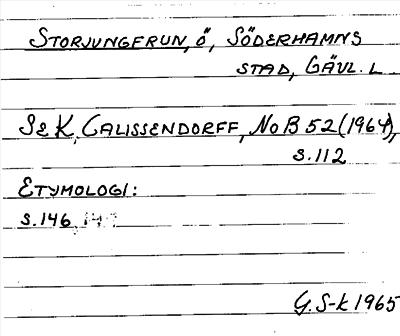 STORJUNGFRUN, Ö, SÖDERHAMNS
STAD, GÄVL. L.
S&K, CALISSENDORFF, NoB 52 (1964),
S. 112
ETYMOLOGI:
S. 146,
G. S-k 1965